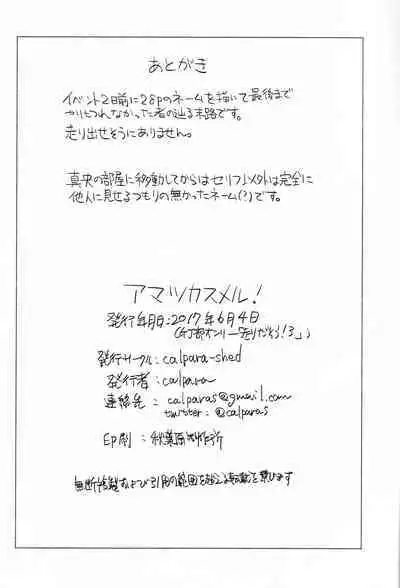 あとがき
イベント2日前に28pのネームを描いて最後まで
やりきれなかった者の辿る末路です。
走り出せそうにありません。
真央の部屋に移動してからはセリフ以外は完全に
他人に見せるつもりの無かったネーム(?)です。
アマツカスメル!
発行年月日:2017年6月4日
オンリー 走りだそう!3」)
発行サークル:calpara-shed
発行者:calpara
連絡先:calparas@gmail.com
twitter:@calparas
印刷:秋葉原制作所
無断複製および引用の範囲を越える転載を禁じます